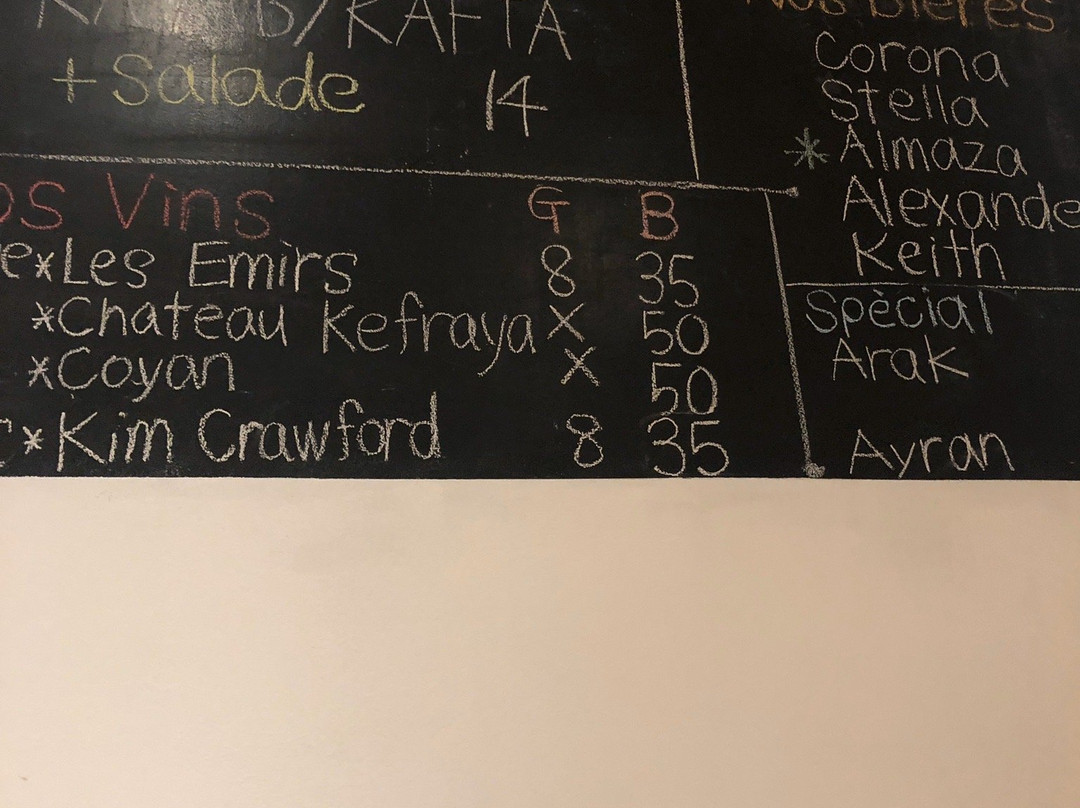 KAFTA
+ Salade 14
Vins G B
*Les Emirs 8 35
*Chateau Kefraya X 50
*Coyan X 50
*Kim Crawford 8 35
Nos Bières
Corona
Stella
* Almaza
Alexande
Keith
Spècial
Arak
Ayran